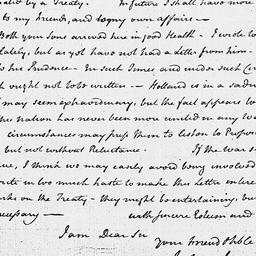 by a Treaty. In future I shall have more
to my friends, and to my own affairs —
Both your Sons arrived here in good Health — I wrote to
lately, but as yet have not had a Letter from him —
his Prudence — In such Times and under such
ought not to be written — Holland is in a sad
may seem extraordinary, but the fact appears to
this nation has never been more united in any
circumstances may press them to listen to
but not without Reluctance. If the war
I think we may easily avoid being involved
write in too much haste to make this Letter
on the Treaty — they might be entertaining, but
necessary — with sincere Esteem and
I am Dear Sir
your friend